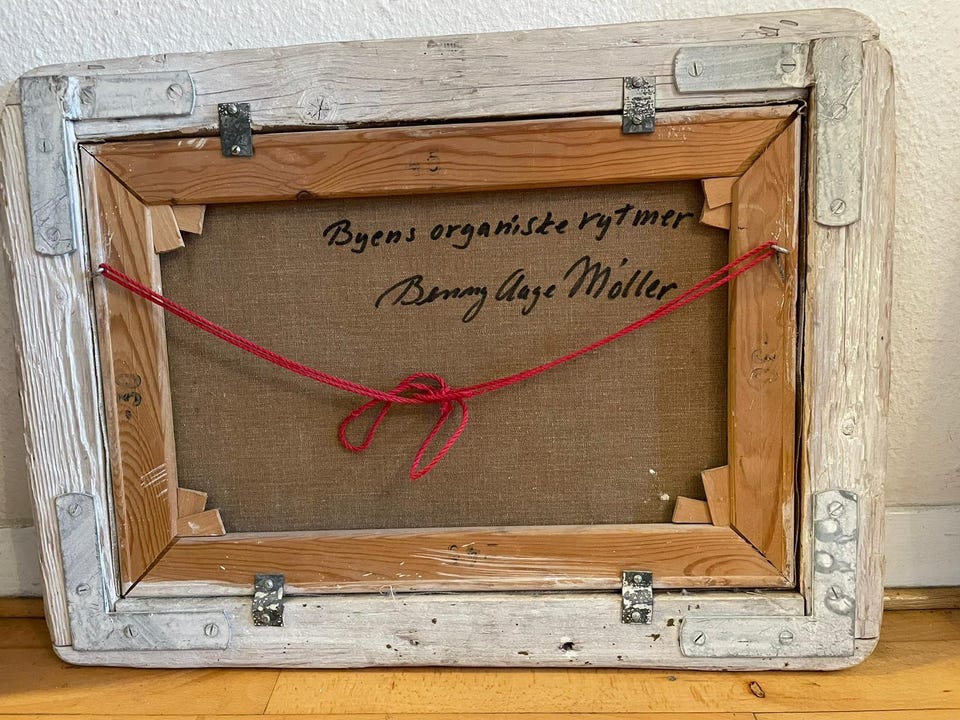 Byens organiske rytmer
Benny Aage Möller